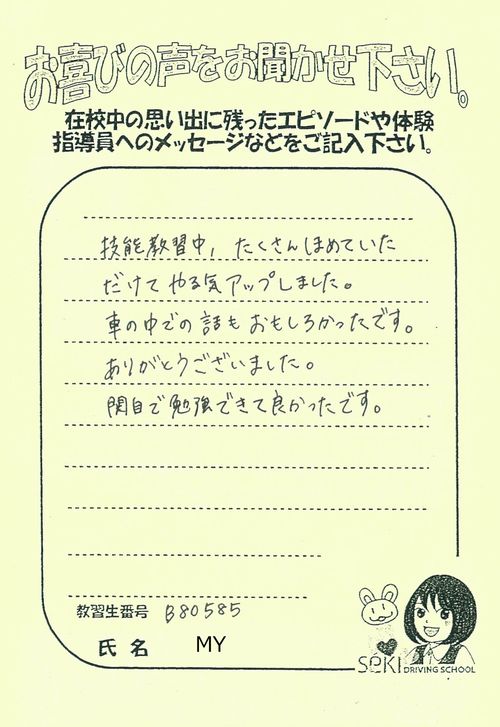 お喜びの声をお聞かせ下さい。
在校中の思い出に残ったエピソードや体験
指導員へのメッセージなどをご記入下さい。
技能教習中、たくさんほめていた
だけてやる気アップしました。
車の中での話もおもしろかったです。
ありがとうございました。
関自で勉強できて良かったです。
教習生番号 B80585
氏名 MY
SéKI DRIVING SCHOOL